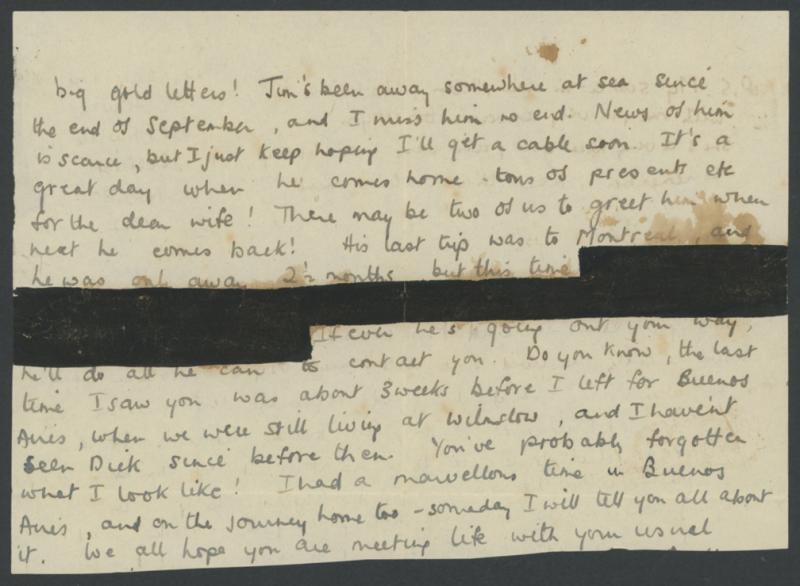 big gold letters! Jim's been away somewhere at sea since
the end of September, and I miss him no end. News of him
is scarce, but I just keep hoping I'll get a cable soon. It's a
great day when he comes home - tons of presents etc
for the dear wife! There may be two of us to greet him when
next he comes back! His last trip was to Montreal, and
he was only away 2½ months but this time
If ever he's going out your way,
he'll do all he can to contact you. Do you know, the last
time I saw you was about 3 weeks before I left for Buenos
Aires, when we were still living at Wilmslow, and I haven't
seen Dick since before then. You've probably forgotten
what I look like! I had a marvellous time in Buenos
Aires, and on the journey home too - someday I will tell you all about
it. We all hope you are meeting life with your usual